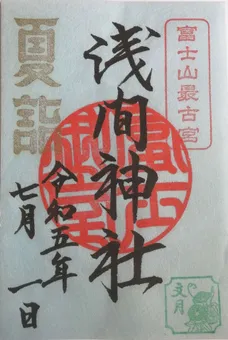 富士山最古宮
浅間神社
冨士
御室
夏詣
令和五年
七月一日
文月